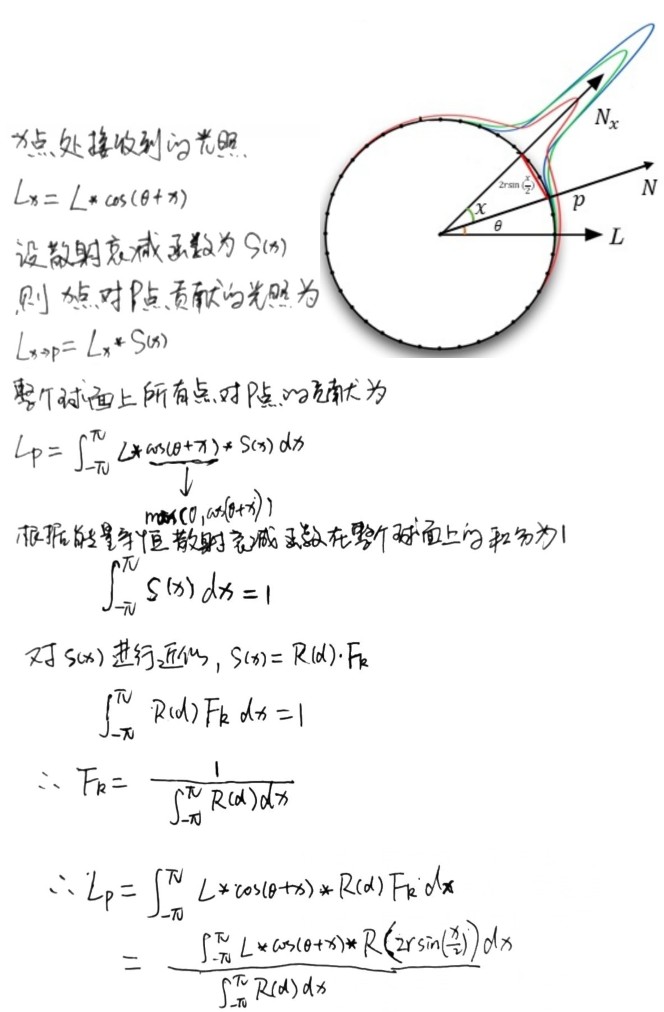 x点处接收到的光照
Lx = L * cos(θ+x)
设散射衰减函数为 S(x)
则 x点对P点贡献的光照为
Lx→p = Lx * S(x)
整个球面上所有点对P点的贡献为
Lp = ∫_{-π}^{π} L * cos(θ+x) * S(x) dx
↓
max(0, cos(θ+x))
根据能量守恒 散射衰减函数在整个球面上的积分为1
∫_{-π}^{π} S(x) dx = 1
对S(x) 进行近似, S(x) = R(d)·Fk
∫_{-π}^{π} R(d) Fk dx = 1
∴ Fk = 1 / ∫_{-π}^{π} R(d) dx
∴ Lp = ∫_{-π}^{π} L * cos(θ+x) * R(d) Fk dx
= ∫_{-π}^{π} L * cos(θ+x) * R(2r sin(x/2)) dx / ∫_{-π}^{π} R(d) dx
Nx
N
2rsin(x/2)
p
x
θ
L